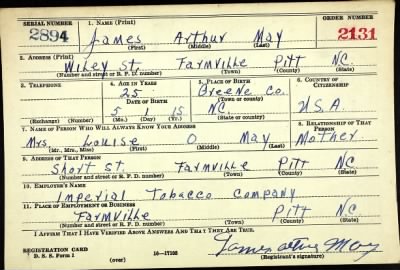 SERIAL NUMBER 1. NAME (Print) ORDER NUMBER
2894 James Arthur May 2131
(First) (Middle) (Last)
2. ADDRESS (Print)
Wiley St. Farmville Pitt N.C.
(Number and street or R. F. D. number) (Town) (County) (State)
3. TELEPHONE 4. AGE IN YEARS 5. PLACE OF BIRTH 6. COUNTRY OF CITIZENSHIP
25 Greene Co.
DATE OF BIRTH (Town or county)
5 1 15 N.C. USA
(Exchange) (Number) (Mo.) (Day) (Yr.) (State or country)
7. NAME OF PERSON WHO WILL ALWAYS KNOW YOUR ADDRESS 8. RELATIONSHIP OF THAT PERSON
Mrs. Louise O May Mother
(Mr., Mrs., Miss) (First) (Middle) (Last)
9. ADDRESS OF THAT PERSON
Short St. Farmville Pitt N.C.
(Number and street or R. F. D. number) (Town) (County) (State)
10. EMPLOYER'S NAME
Imperial Tobacco Company
11. PLACE OF EMPLOYMENT OR BUSINESS
Farmville Pitt N.C.
(Number and street or R. F. D. number) (Town) (County) (State)
I AFFIRM THAT I HAVE VERIFIED ABOVE ANSWERS AND THAT THEY ARE TRUE.
REGISTRATION CARD James Arthur May
D. S. S. Form 1 (over) 16—17105 (Registrant's signature)